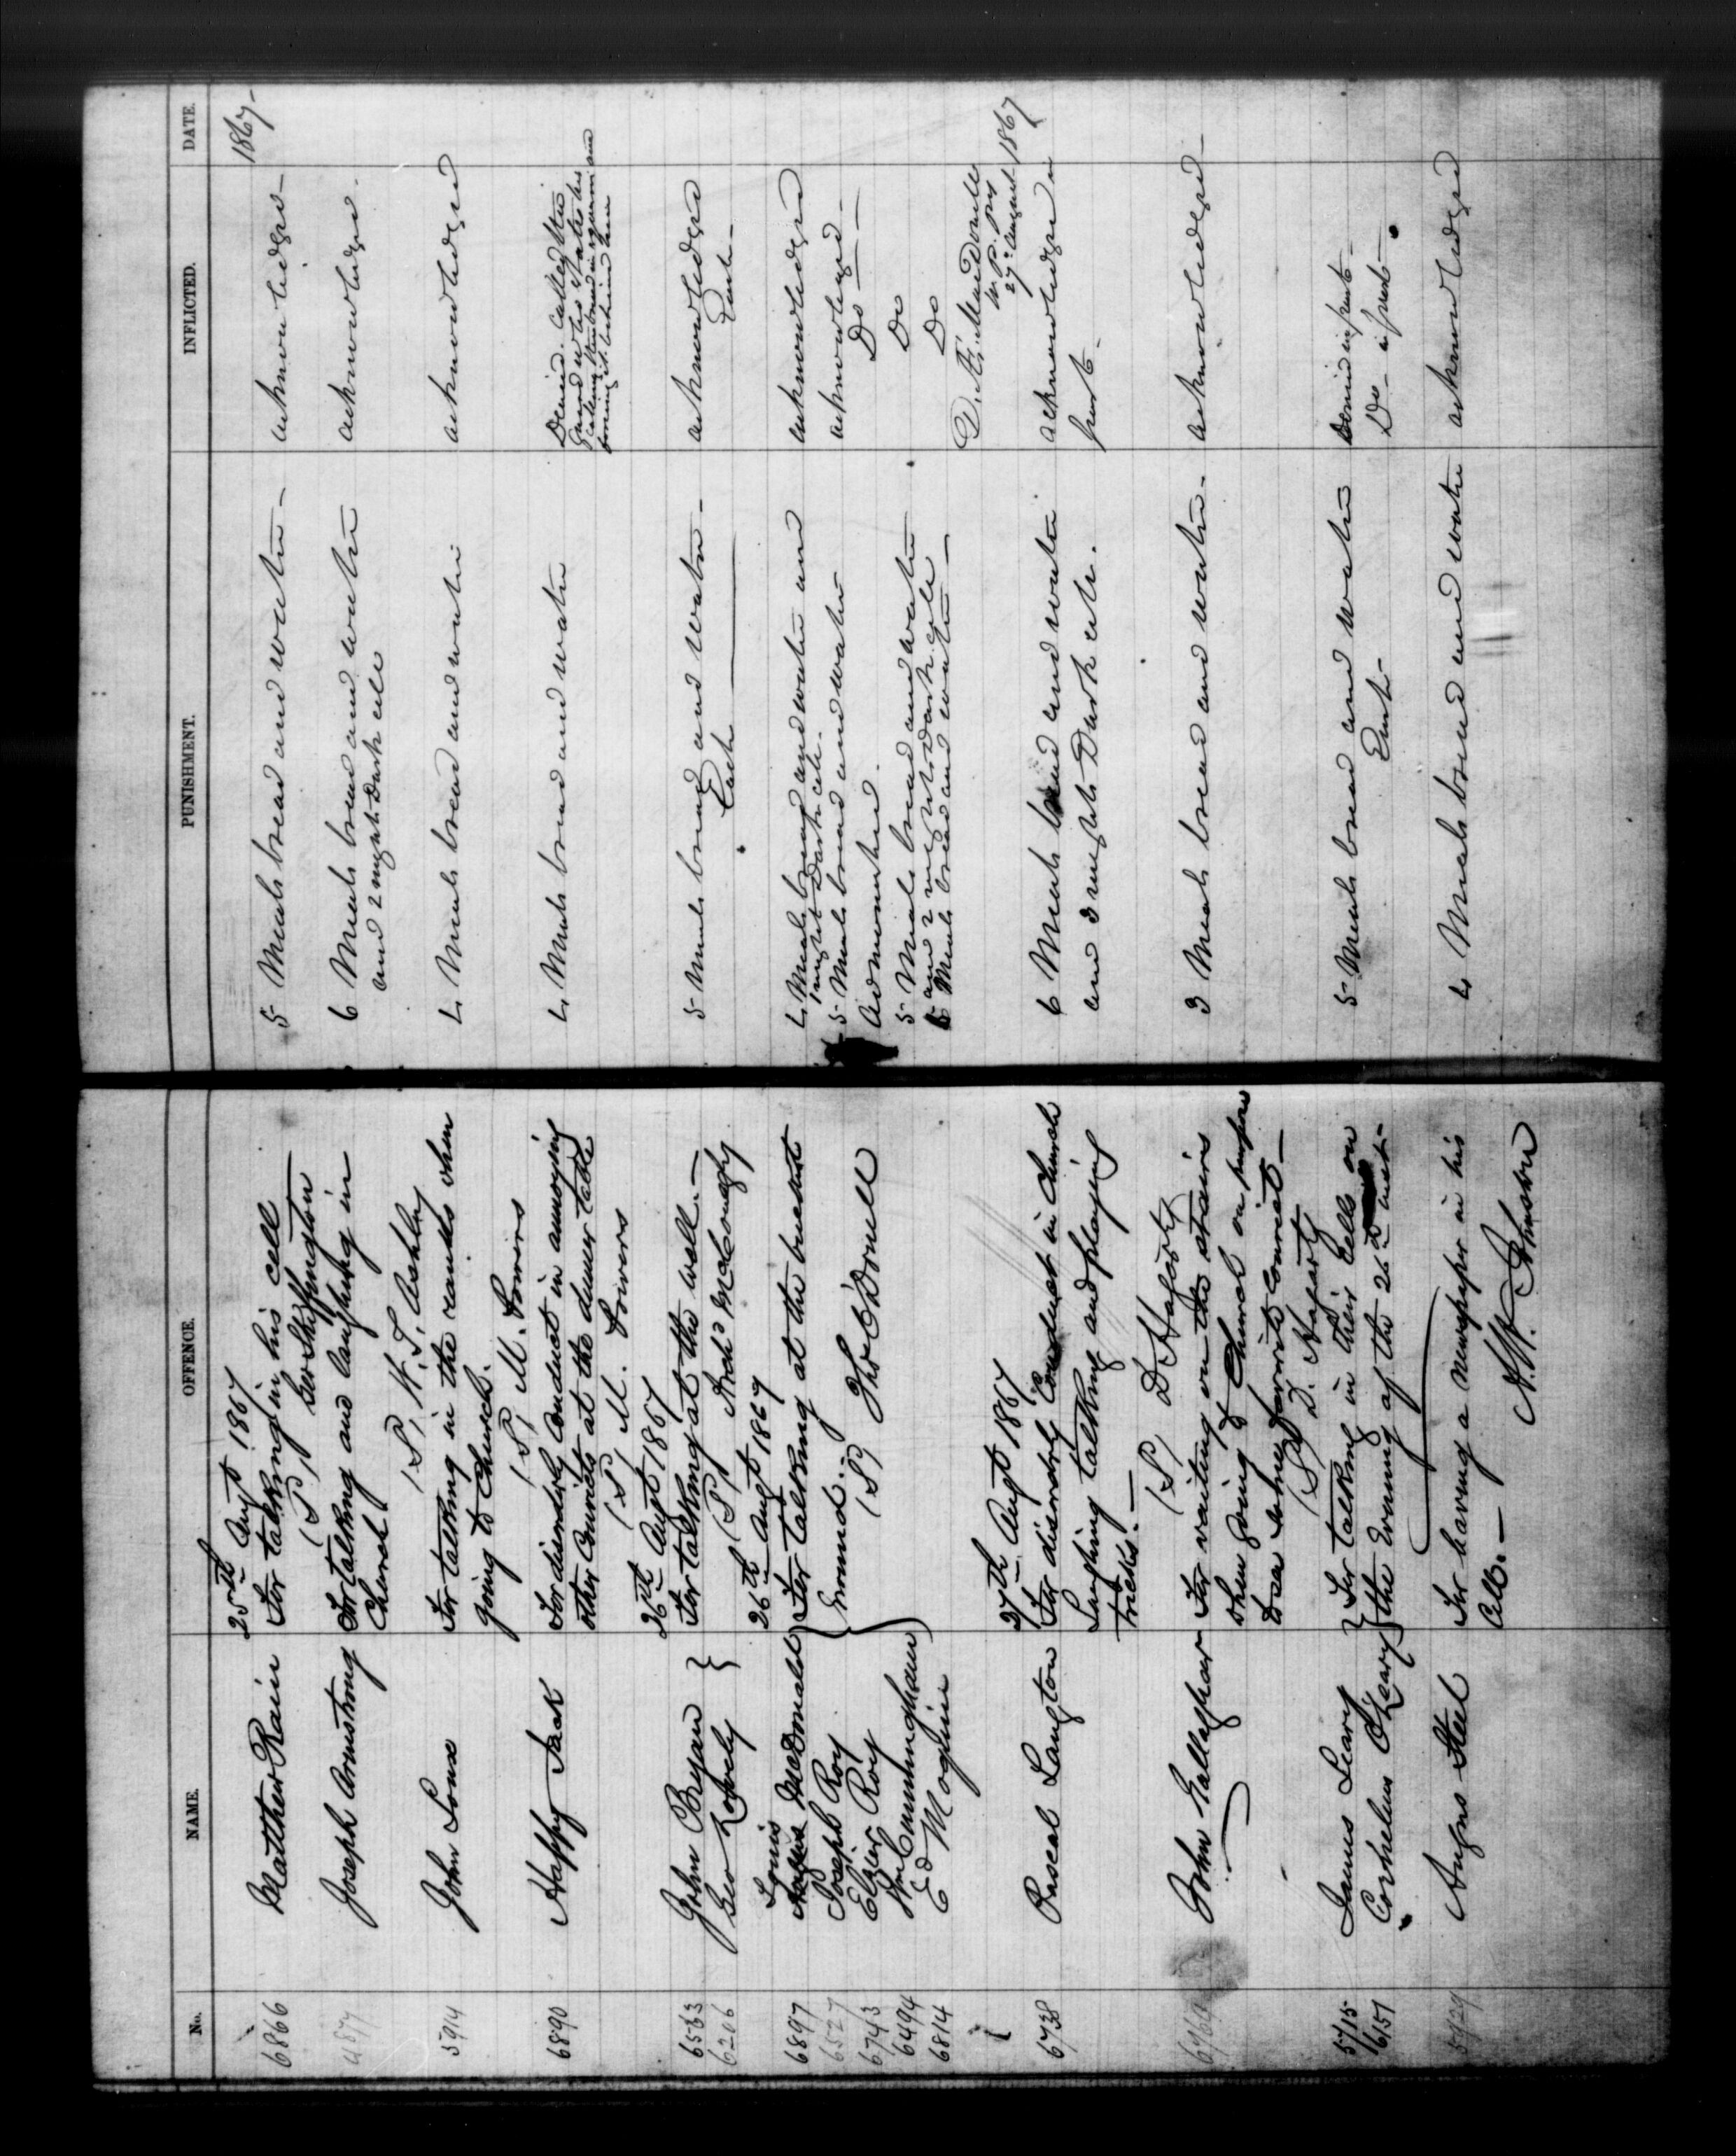 No. NAME. OFFENCE. PUNISHMENT. INFLICTED. DATE.
25th Augt 1867 1867-
6866 Matthew Rain For talking in his cell 5 Meals bread and water - acknowledged -
(S) Geo Skeffington
4877 Joseph Armstrong For talking and laughing in 6 Meals bread and water acknowledged -
Church. and 2 nights Dark cell
(S) W. T. Ashley
5914 John Lone For talking in the ranks when 4 Meals bread and water acknowledged
going to Church.
(S) M. Powers
6890 Happy Jack For disorderly Conduct in annoying 4 Meals bread and water Denied. Called the
other Convicts at the dinner table Guard who states he
(S) M. Powers
26th Augt 1867
6533 John Bryan } For talking at the well - 5 Meals bread and water - acknowledged
6206 Geo Lovely (S) Archd Macdonagh Each Each -
26th Augt 1867
Louis
6897 McDonald For talking at the basement 4 Meals bread and water and acknowledged
1 night Dark cell.
6527 Joseph Roy Ground. - 5 Meals bread and water acknowledged -
6743 Elzier Roy (S) Thos O'Donell Admonished. Do -
6494 Wm Cunningham 5 Meals bread and water Do
and 2 nights Dark cell
6814 Ed Maguire 5 Meals bread and water - Do
D. Æ. MacDonell
W. P. pty
27th Augt 1867 27th August 1867
6738 Pascal Langton For disorderly Conduct in Church 6 Meals bread and water acknowledged in
Laughing talking and playing and 3 nights Dark cell. part -
tricks. -
(S) D. Hagarty
6769 John Gallaghar For waiting on the stairs 3 Meals bread and water - acknowledged -
when going to Church on purpose
to see some favorite Convict -
(S) D. Hagarty
5715 James Leary } For talking in their Cells on 5 Meals bread and water Denied in part -
6151 Cornelius O'Leary } the Evening of the 26th inst - Each - Do - in part -
5729 Angus Steel For having a newspaper in his 4 Meals bread and water acknowledged
Cell. -
A. W. Johnson